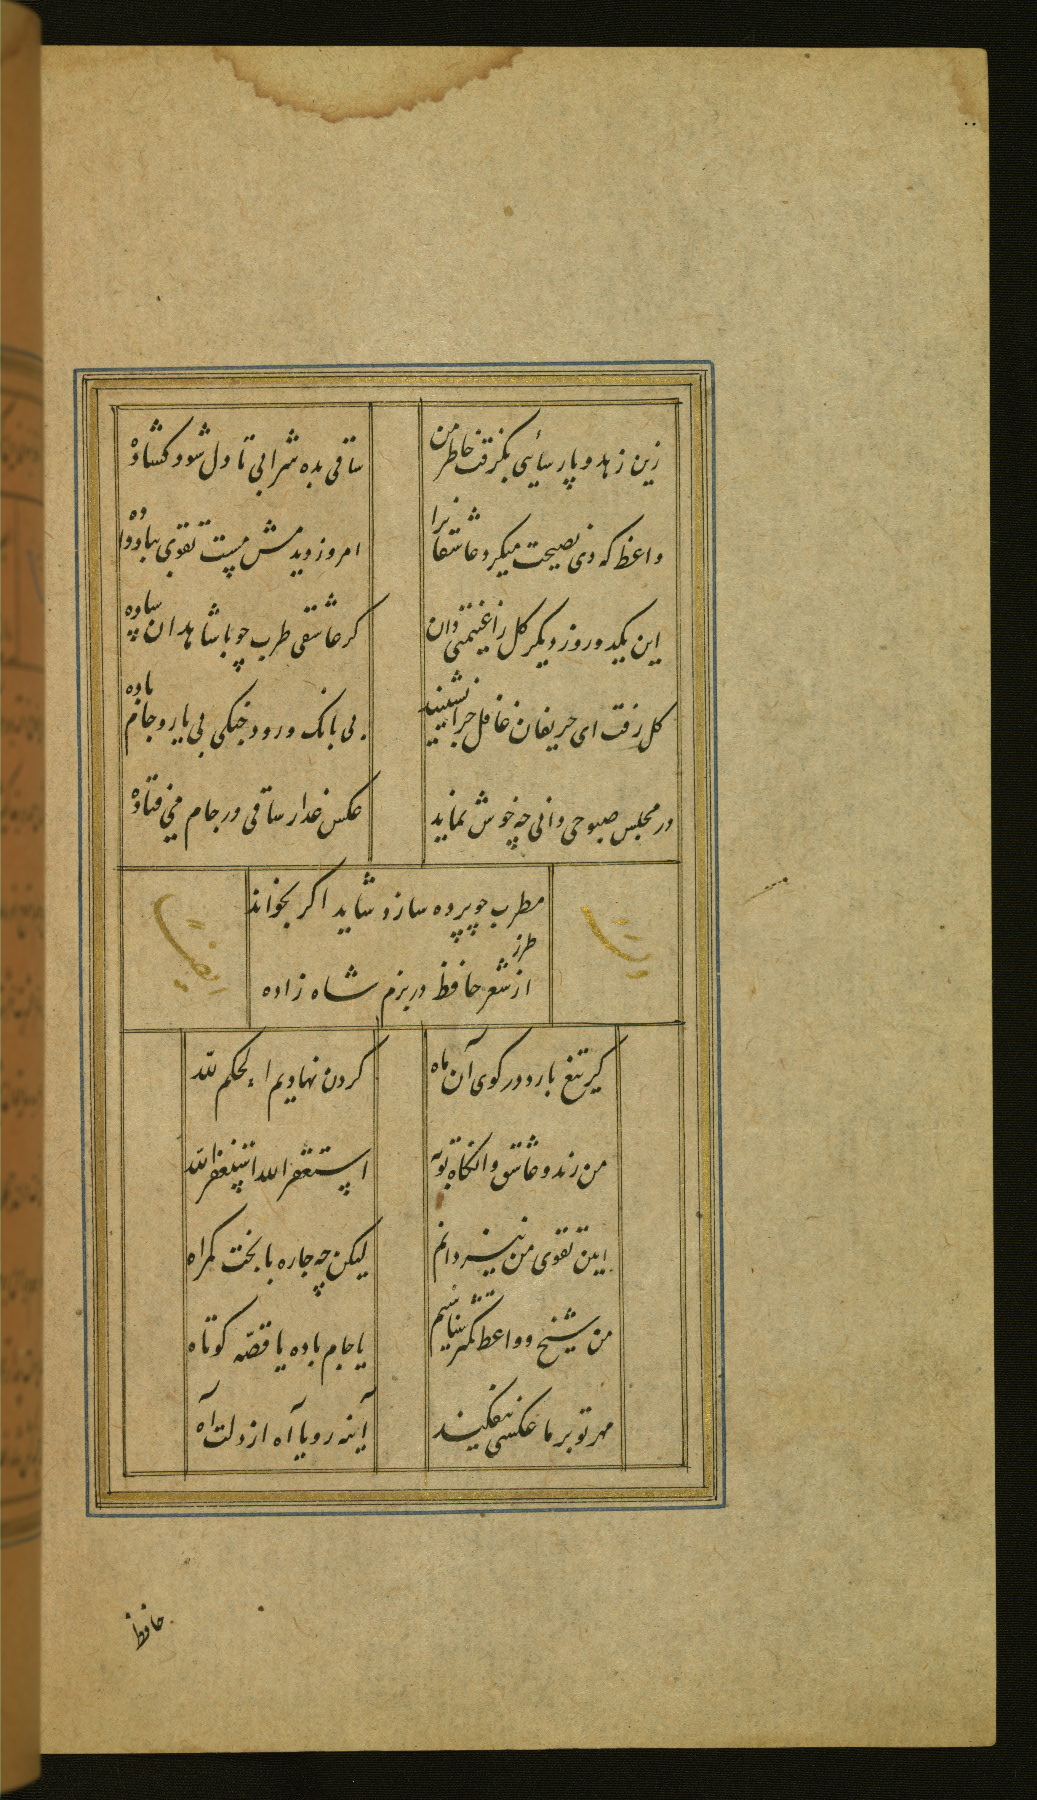 زین زهد و پارسائی بگرفت خاطر من
ساقی بده شرابی تا دل شود کشاده
واعظ که دی نصیحت میکرد عاشقانرا
امروز دیدمش مست تقوی بباد داده
این یکدو روز دیکر کل را غنیمتی دان
کر عاشقی طرب جو با شاهدان ساده
کل رفت ای حریفان غافل چرا نشینید
بی بانک رود جنکی بی یار و جام باده
در مجلس صبوحی دانی چه خوش نماید
عکس عذار ساقی در جام می فتاده
مطرب چو پرده سازد شاید اکر بخواند
از طرز شعر حافظ در بزم شاه زاده
کر تیغ بارد در کوی آن ماه
کردن نهادیم الحکم لله
من رند و عاشق وانکاه توبه
استغفر الله استغفر الله
این تقوی من نیز دانم
لیکن چه چاره با بخت کمراه
من شیخ و واعظ کمتر شناسیم
یا جام باده یا قصه کوتاه
مهر تو بر ما عکسی نیفکند
آینه رویا آه از دلت آه
حافظ